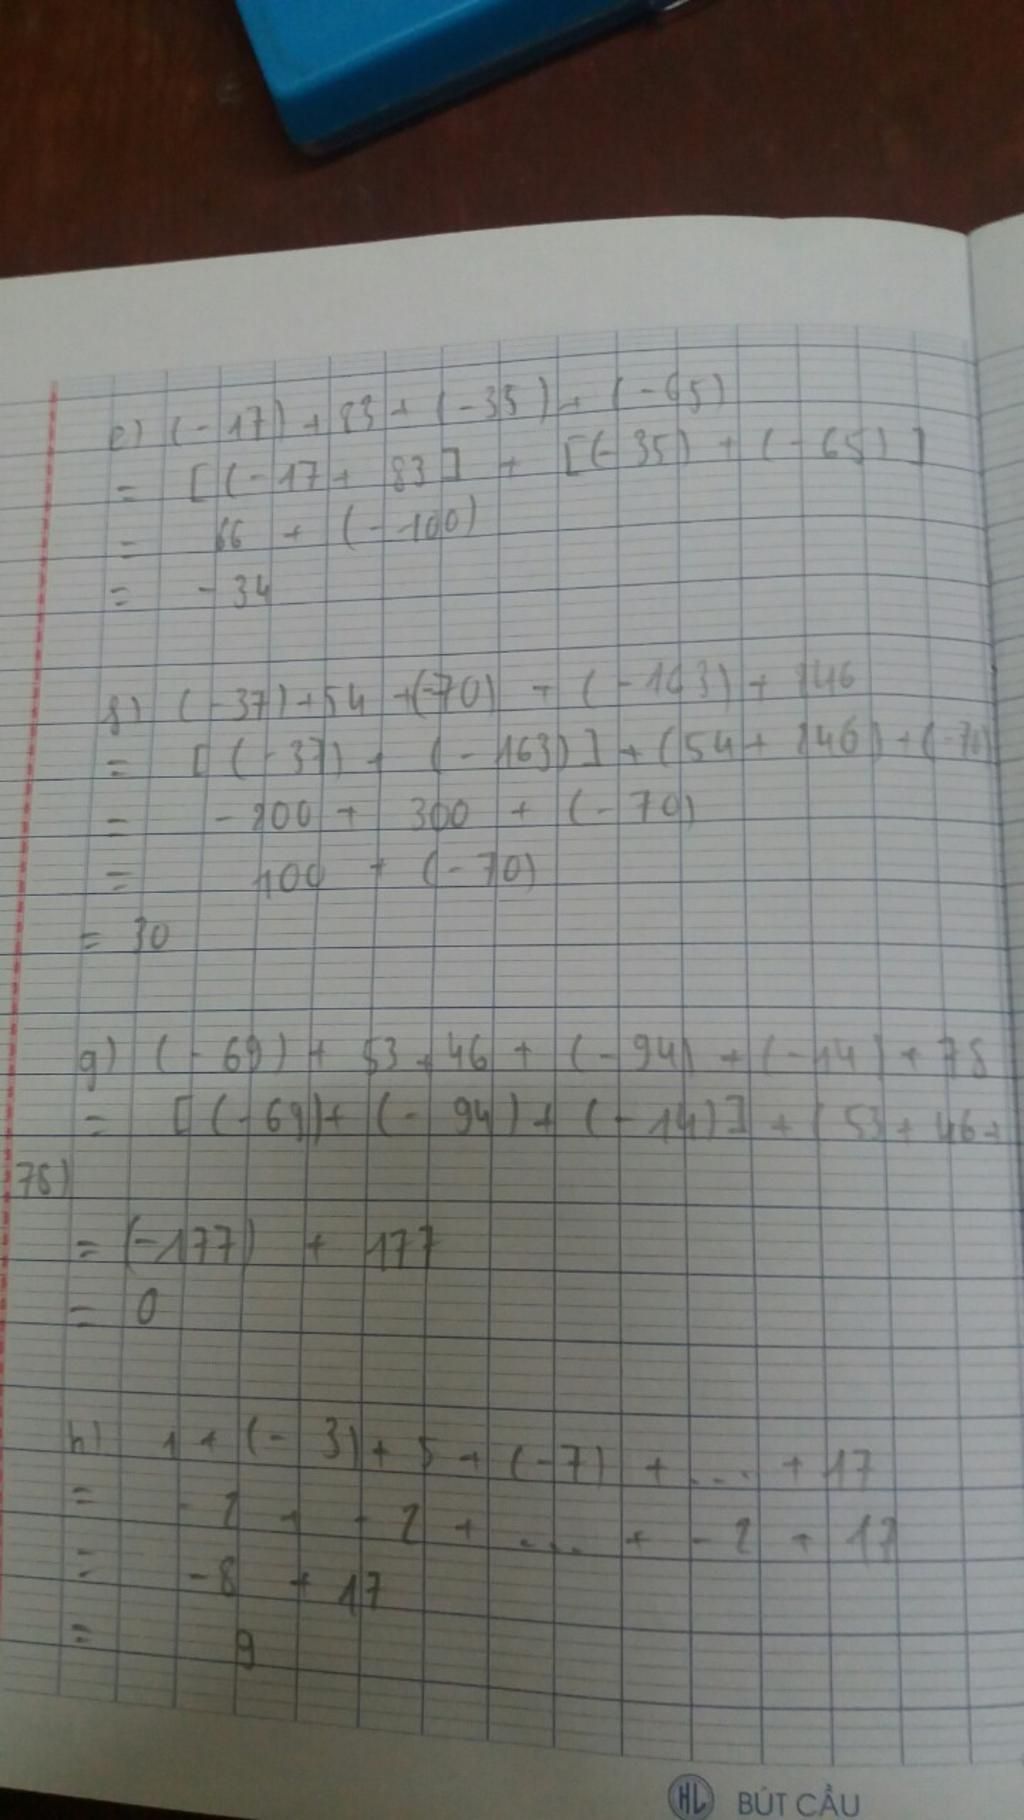 e) (-17) + 83 + (-35) + (-65)
= [(-17 + 83] + [(-35) + (-65)]
= 66 + (-100)
= -34
f) (-37) + 54 + (-70) + (-163) + 246
= [(-37) + (-163)] + (54 + 246) + (-70)
= -200 + 300 + (-70)
= 100 + (-70)
= 30
g) (-69) + 53 + 46 + (-94) + (-14) + 78
= [(-69) + (-94) + (-14)] + (53 + 46 +
78)
= (-177) + 177
= 0
h) 1 + (-3) + 5 + (-7) + ... + 17
= -2 + -2 + ... + -2 + 17
= -8 + 17
= 9
HL BÚT CẦU